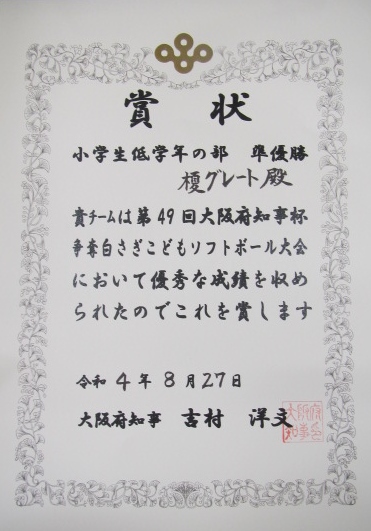 賞状
小学生低学年の部 準優勝
檀グレート殿
貴チームは第49回大阪府知事杯
争奪白さぎこどもソフトボール大会
において優秀な成績を収め
られたのでこれを賞します
令和4年8月27日
大阪府知事 吉村 洋文
大阪府知事之印